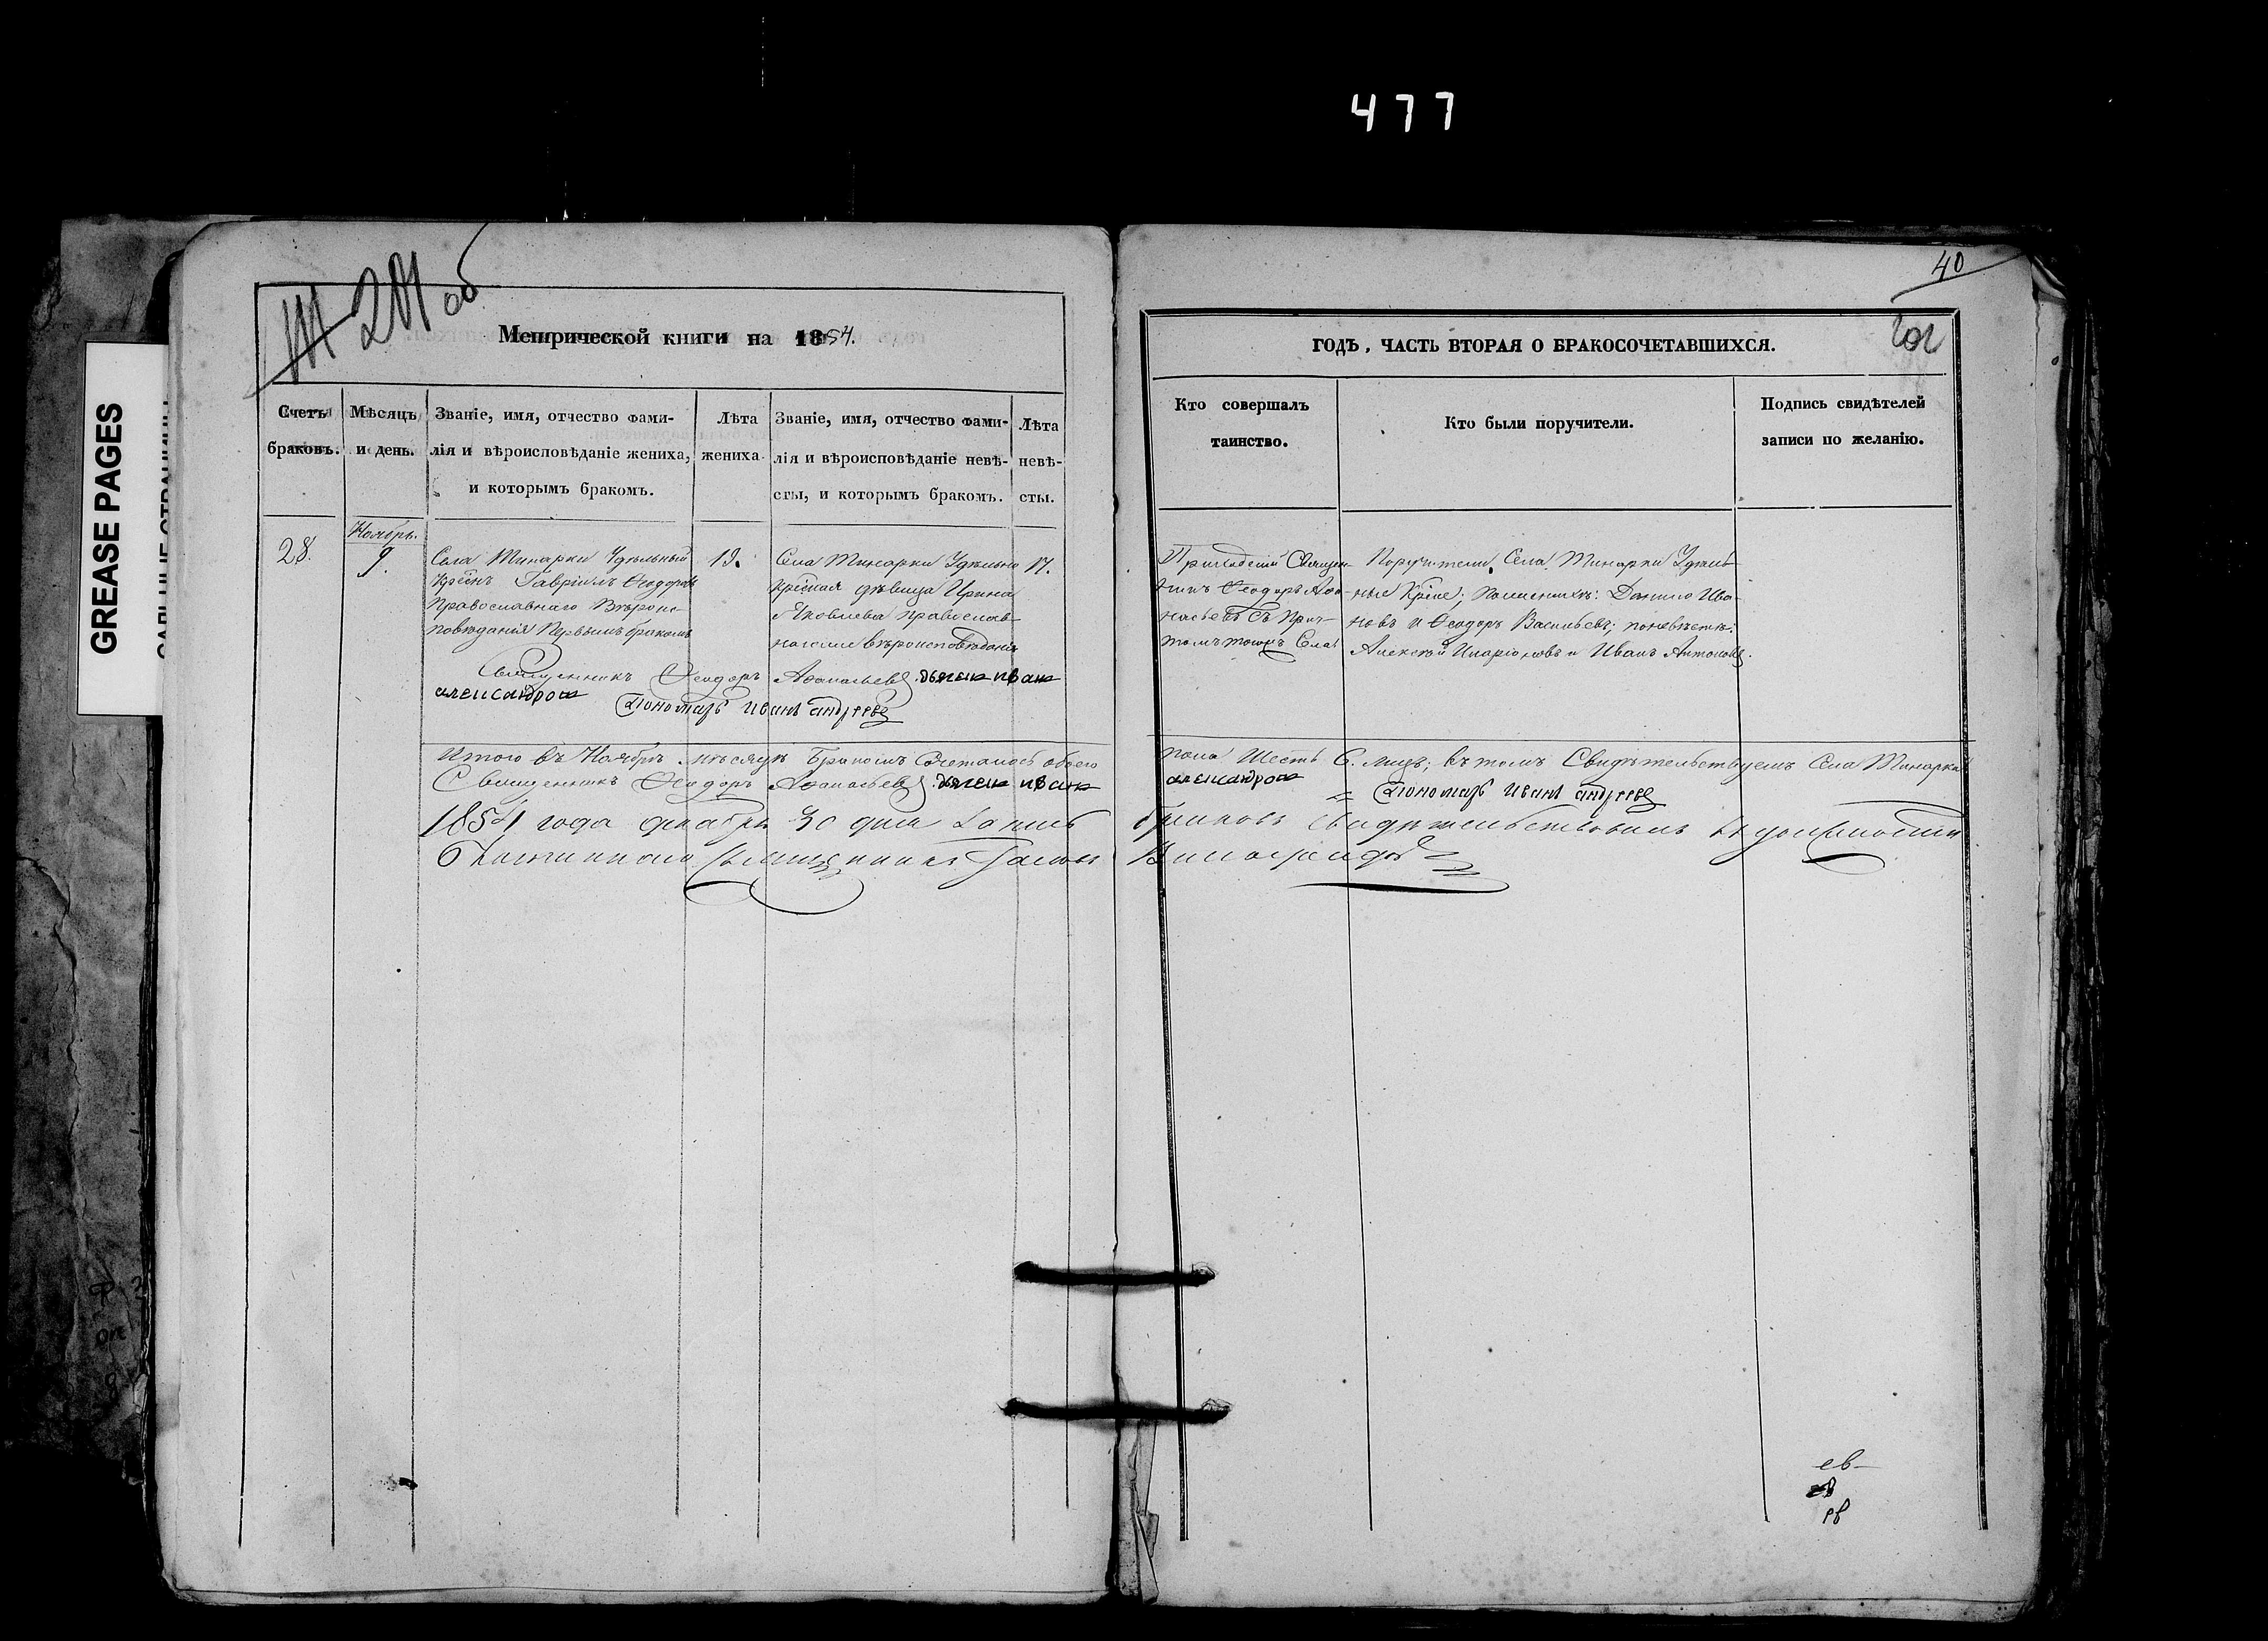 477
GREASE PAGES
201 об
40
202
Метрической книги на 1854.
ГОДЪ, ЧАСТЬ ВТОРАЯ О БРАКОСОЧЕТАВШИХСЯ.
Счетъ браковъ.
Мѣсяцъ и день.
Званіе, имя, отчество фами-
лія и вѣроисповѣданіе жениха,
и которымъ бракомъ.
Лѣта
жениха
Званіе, имя, отчество фами-
лія и вѣроисповѣданіе невѣ-
сты, и которымъ бракомъ.
Лѣта
невѣ-
сты.
Кто совершалъ
таинство.
Кто были поручители.
Подпись свидѣтелей
записи по желанію.
28.
Ноябрь.
9.
Села Тинарки Удѣльный
Гавріилъ Ѳеодоровъ
Православнаго Вѣроис-
повѣданія Первымъ бракомъ
Села Тинарки Удѣльно
дѣвица Ирина
Яковлева православ-
вѣроисповѣданія
17.
Приходскій Священ-
никъ Ѳеодоръ Аѳа-
насьевъ съ прич-
томъ Села
Поручители Села Тинарки Удѣль-
ные Данило Ива-
новъ и Ѳеодоръ Васильевъ; по невѣстѣ:
Алексѣй Иларіоновъ и Иванъ Антоновъ.
Священникъ Ѳеодоръ Аѳанасьевъ. дьячекъ иван
александров
Пономарь Иванъ андреевъ
Итого въ Ноябрѣ мѣсяцѣ Бракомъ Сочеталось обоего
пола Шесть 6. лицъ; въ томъ Свидѣтельствуемъ Села Тинарки
Священникъ Ѳеодоръ Аѳанасьевъ. дьячек иван
александров
Пономарь Иванъ андреевъ
1854 года декабря 30 дня Запись
браковъ свидѣтельствовалъ
Священникъ
Виноградовъ
ев
рв